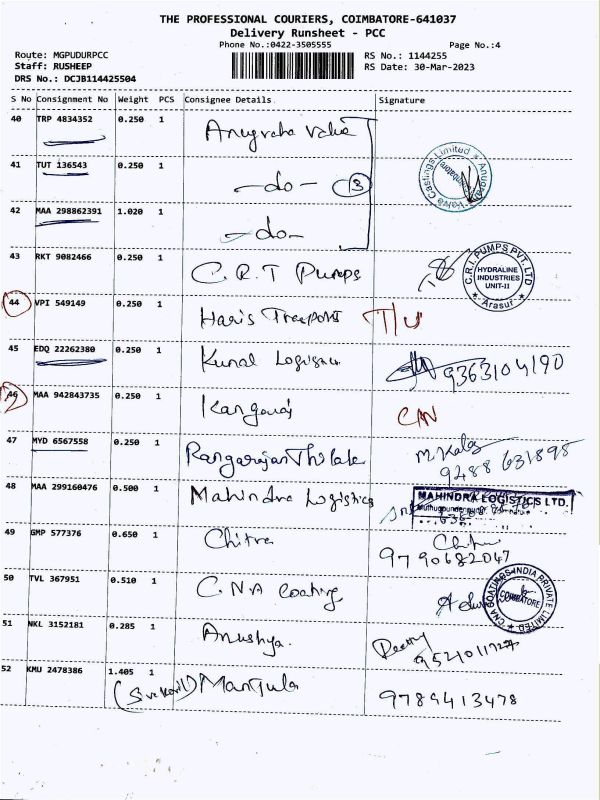 THE PROFESSIONAL COURIERS, COIMBATORE-641037
Delivery Runsheet - PCC
Phone No.:0422-3505555 Page No.:4
Route: MGPUDURPCC RS No.: 1144255
Staff: RUSHEEP RS Date: 30-Mar-2023
DRS No.: DCJB114425504
S No Consignment No Weight PCS Consignee Details Signature
40 TRP 4834352 0.250 1 Anugraha Valve
41 TUT 136543 0.250 1 -do- 3
42 MAA 298862391 1.020 1 -do-
43 RKT 9082466 0.250 1 C.R.I Pumps
C.R.I. PUMPS PVT. LTD
HYDRALINE
INDUSTRIES
UNIT-II
Arasur
44 VPI 549149 0.250 1 Haris Transport T/U
45 EDQ 22262380 0.250 1 Kunal Logistics 9363104190
46 MAA 942843735 0.250 1
47 MYD 6567558 0.250 1 Rangarajan Thilak 9288 631898
48 MAA 299160476 0.500 1 Mahindra Logistics MAHINDRA LOGISTICS LTD.
49 GMP 577376 0.650 1 Chitra 9790682047
50 TVL 367951 0.510 1 C.N.A Coating
CNA COATINGS INDIA PRIVATE LIMITED
COIMBATORE
51 NKL 3152181 0.285 1 Anushya.
52 KMU 2478386 1.405 1 Manjula 9789413478